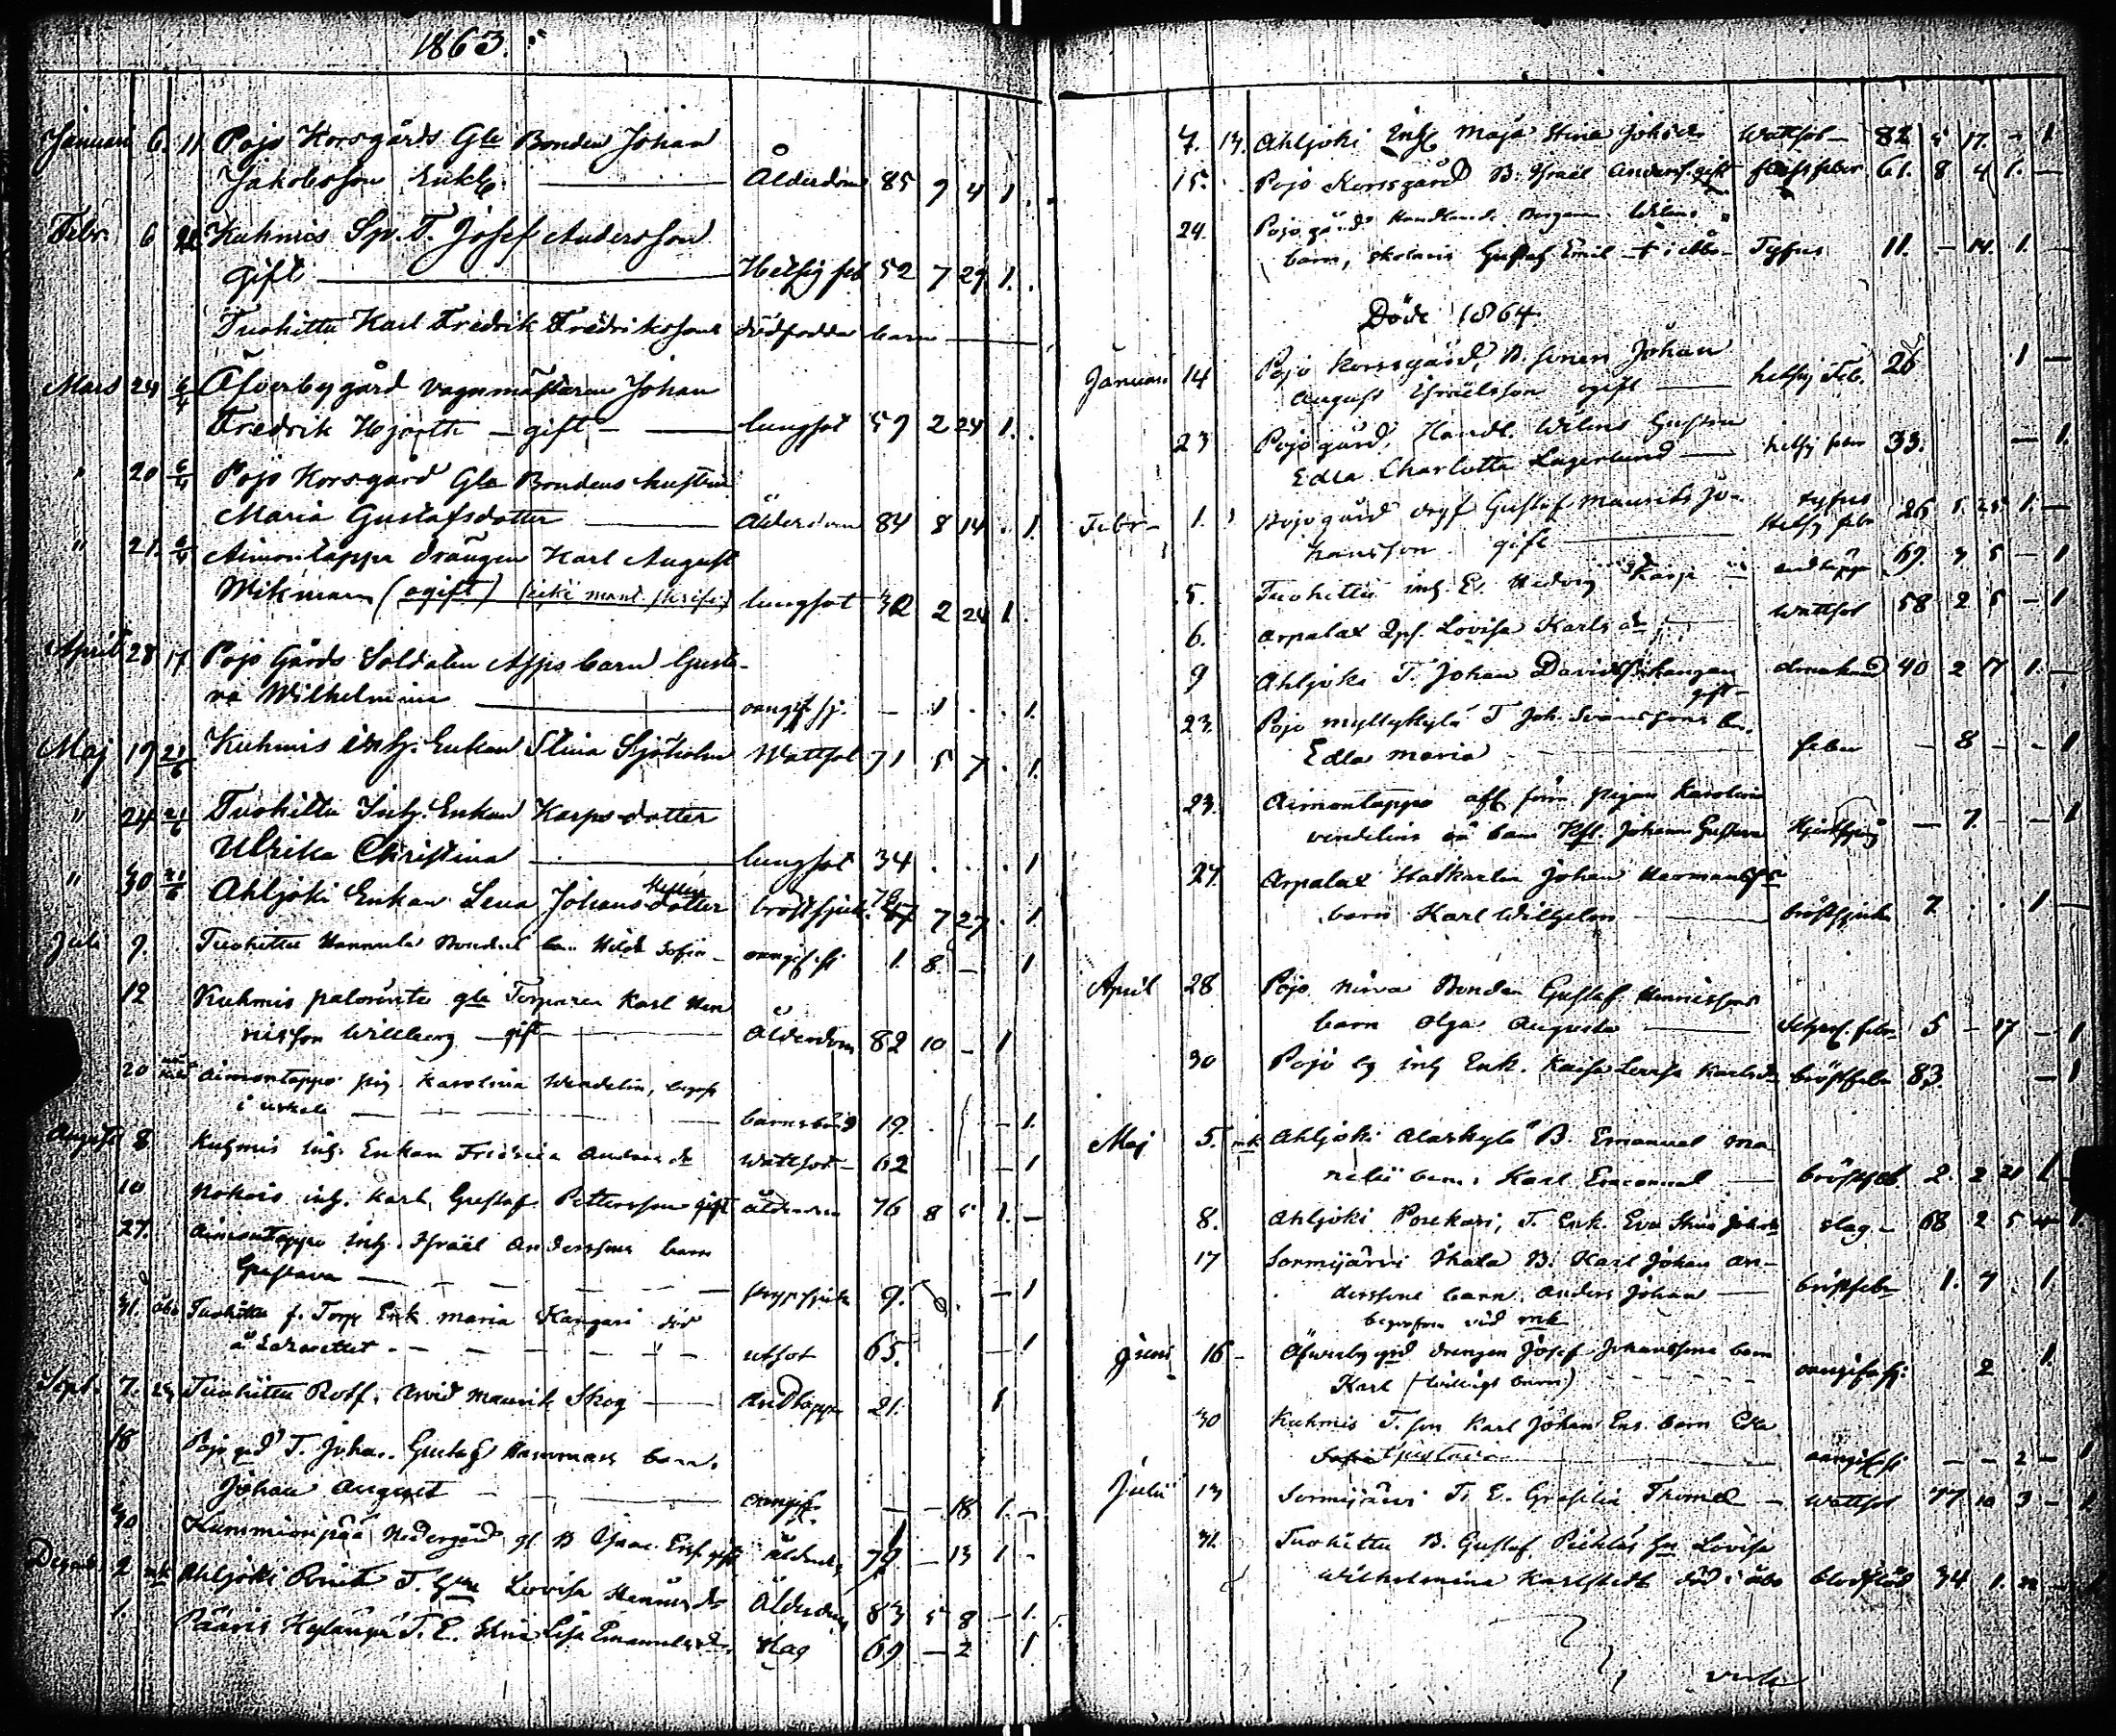 1863.
Januari 6 11 Pojo Korsgårds Gle Bonden Johan
Jakobsson Enkl. Ålderdom 85 9 4 1.
Febr. 6 Kuhmis Sp. T. Josef Andersson
gift Hetsig feb 52 7 29 1.
Tuohittu Karl Fredrik Fredrikssons dödfödda barn
Mars 24 6/4 Åfverbygård vagnmästaren Johan
Fredrik Hjorth - gift - lungsot 59 2 24 1.
" 20 6/4 Pojo Korsgård Gle Bondens hustru
Maria Gustafsdotter Ålderdom 84 8 14 . 1.
" 21. 6/4 Aimontappa drängen Karl August
Wikman (ogift) lungsot 32 2 24 1.
April 28 17 Pojo Gårds Soldaten Asps barn Gusta-
va Wilhelmina oangif. sj. - 1 . . 1.
Maj 19 21/6 Kuhmis inh. Enkan Stina Sjöholm Wattsot 71 5 7 . 1.
" 24 21/6 Tuohittu Inh. Enkan Karpsdotter
Ulrika Christina lungsot 34 . . . 1
" 30 21/6 Ahljoki Enkan Lena Johansdotter bröstsjuk. 7 27 . 1
Juli 9. Tuohittu Hannula Bondens barn Hilda Sofia oangif. sj. 1. 8. - 1
12 Kuhmis palorinta gle Torparen Karl Hen
risson Willberg - gift - Ålderdom 82 10 - 1
20 Aimontappo pig. Karolina Wendelin, begrofs
i Uskela barnsbörd 19. - 1.
Augusti 8 Kuhmis inh. Enkan Fredrica Anders dr Wattsot - 62 - 1
10 Nokois inh. Karl Gustaf Pettersson gift ålderdom 76 8 5 1. -
27. Aimontappo inh. Israël Anderssons barn
Gustava 9. - 1
31. Åbo Tuohittu f. Torp Enk Maria Kangari död
å Lazarettet utsot 65. - 1
Sept. 7. Tuohittu Rotf. Arvid Maurits Skog Andtäppa 21. 1
18 Pojo grd T. Johan Gustaf Hammars barn
Johan August oangif. - - 18 1. -
30 Kummionpää Nedergård gl B Isaac Ersf. gift ålderd. 79 - 13 1 -
Decemb. 2 mk Ahljoki Runt T. Hu Lovisa Henriks dr Ålderdom 83 5 8 - 1.
1. Pääris Kylänpä T. E. Stina Lisa Emanuels dr. Slag 69 - 2 1
7. 13. Ahljoki Enk Maja Stina Johsdr Wattsot - 82 5 17. - 1
15. Pojo Korsgård B. Israël Andersf. gift 61. 8 4 1. -
24. Pojo gård Handland. Benjamin Wilens
barn, skolaris Gustaf Emil † i Åbo - Tyfus 11. - 14. 1. -
Döde 1864
Januari 14 Pojo Korsgård, B. sonen Johan
August Israëlsson ogift hetsig Feb. 26 1 -
23 Pojo gård, Handl. Wilens Hustru
Edla Charlotta Lagerlund hetsig feber 33. - 1.
Febr - 1. Pojo gård drgf Gustaf Maurits Jo-
hansson gift tyfus Hetsig febr 26 1. 25 1. -
5. Tuohittu inh. E. Hedvig Karp andtäppa 69. 7 5 - 1
6. Arpalax Sps. Lovisa Karls dr Wattsot 58 2 5 - 1
9 Ahljoki T. Johan Davidss. Kangan
gift drunknad 40 2 17 1. -
23. Pojo Myllykylä T Joh. Svanssons bn.
Edla Maria feber - 8 - - 1
23. Aimontappo afl. förra pigan Karolina
Vendelins oä barn Johanna Gustava - 7. - - 1
27. Arpalax Statkarlen Johan Hermanss
barn Karl Wilhelm bröstsjuka 7 . . 1 -
April 28 Pojo Nirva Bonden Gustaf Henrikssons
barn Olga Augusta 5 - 17 - 1
30 Pojo by inh Enk. Kaisa Lovisa Karls dr bröstfebr 83 - 1
Maj 5. mk Ahljoki Alaskylä B. Emanuel Ma-
nelii barn, Karl Emanuel bröstfeb. 2. 2 21 1
8. Ahljoki Porekari, T. Enk. Eva Stina Johsdr slag - 68 2 5 - 1
17 Sormijärvi Skata B. Karl Johan An-
derssons barn, Anders Johan bröstfebr 1. 7 . 1.
begrofven vid mk
Juni 16 - Åfverby grd drengen Josef Johanssons barn
Karl (tvillings barn) oangifn sj. 2 . 1.
30 Kuhmis T. son Karl Johan Ers. barn Eva
Sofia Gustava oangif. sj. - - 2 - 1
Julii 13 Sormijärvi T. E. Gresilia Thomd - Wattsot 77 10 3 - 1
31. Tuohittu B. Gustaf Pichlás Hu Lovisa
Wilhelmina Karlstedt död i Åbo Blodflöd 34 1. 22 - 1